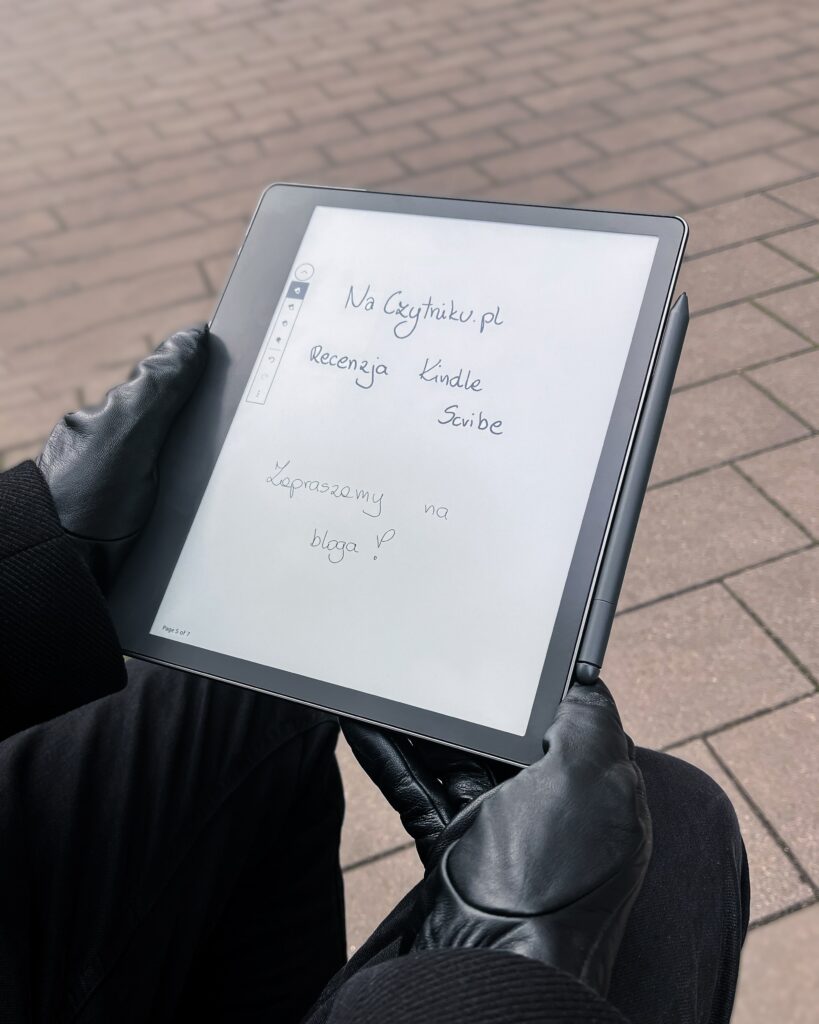 Na Czytniku.pl
Recenzja Kindle
Scribe
Zapraszamy na
bloga!
Page 5 of 7